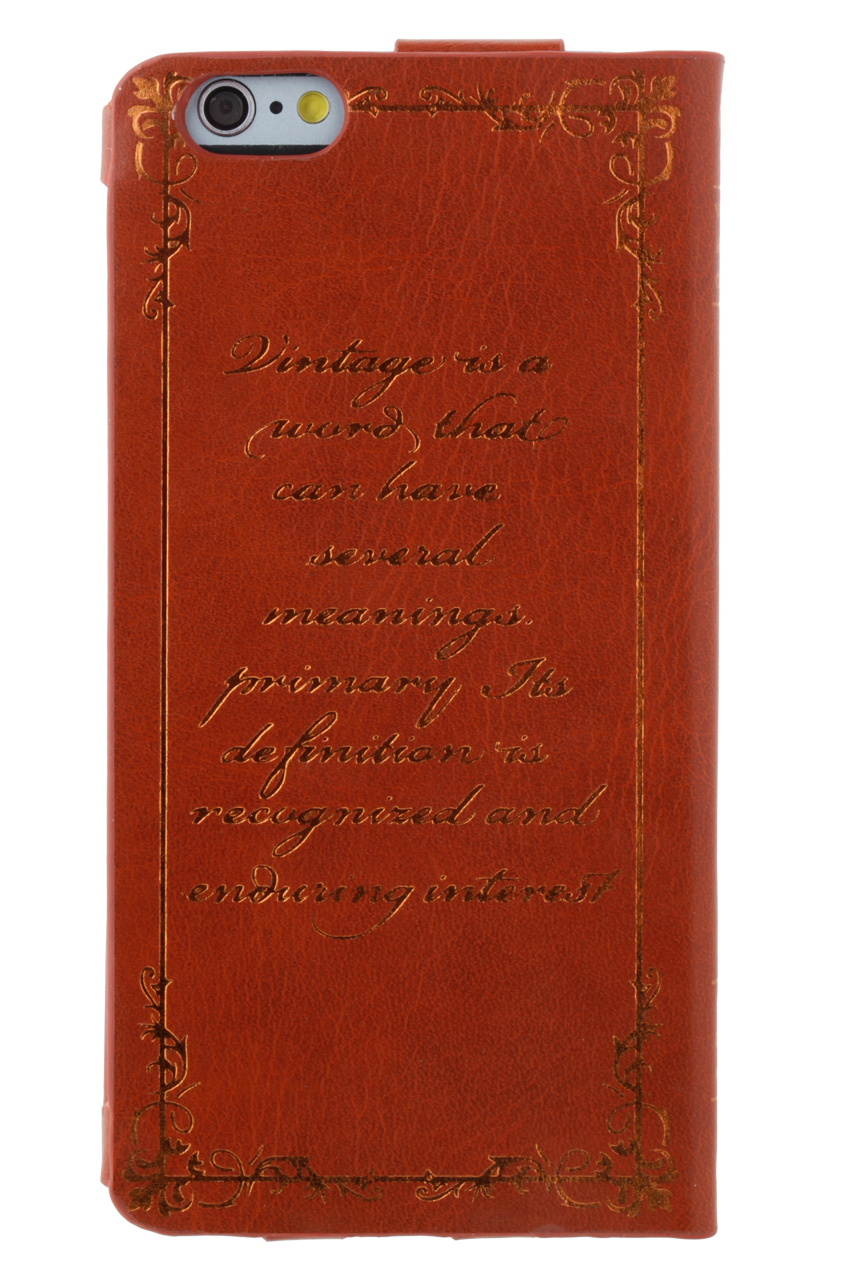 Vintage is a
word that
can have
several
meanings.
primary Its
definition is
recognized and
enduring interest